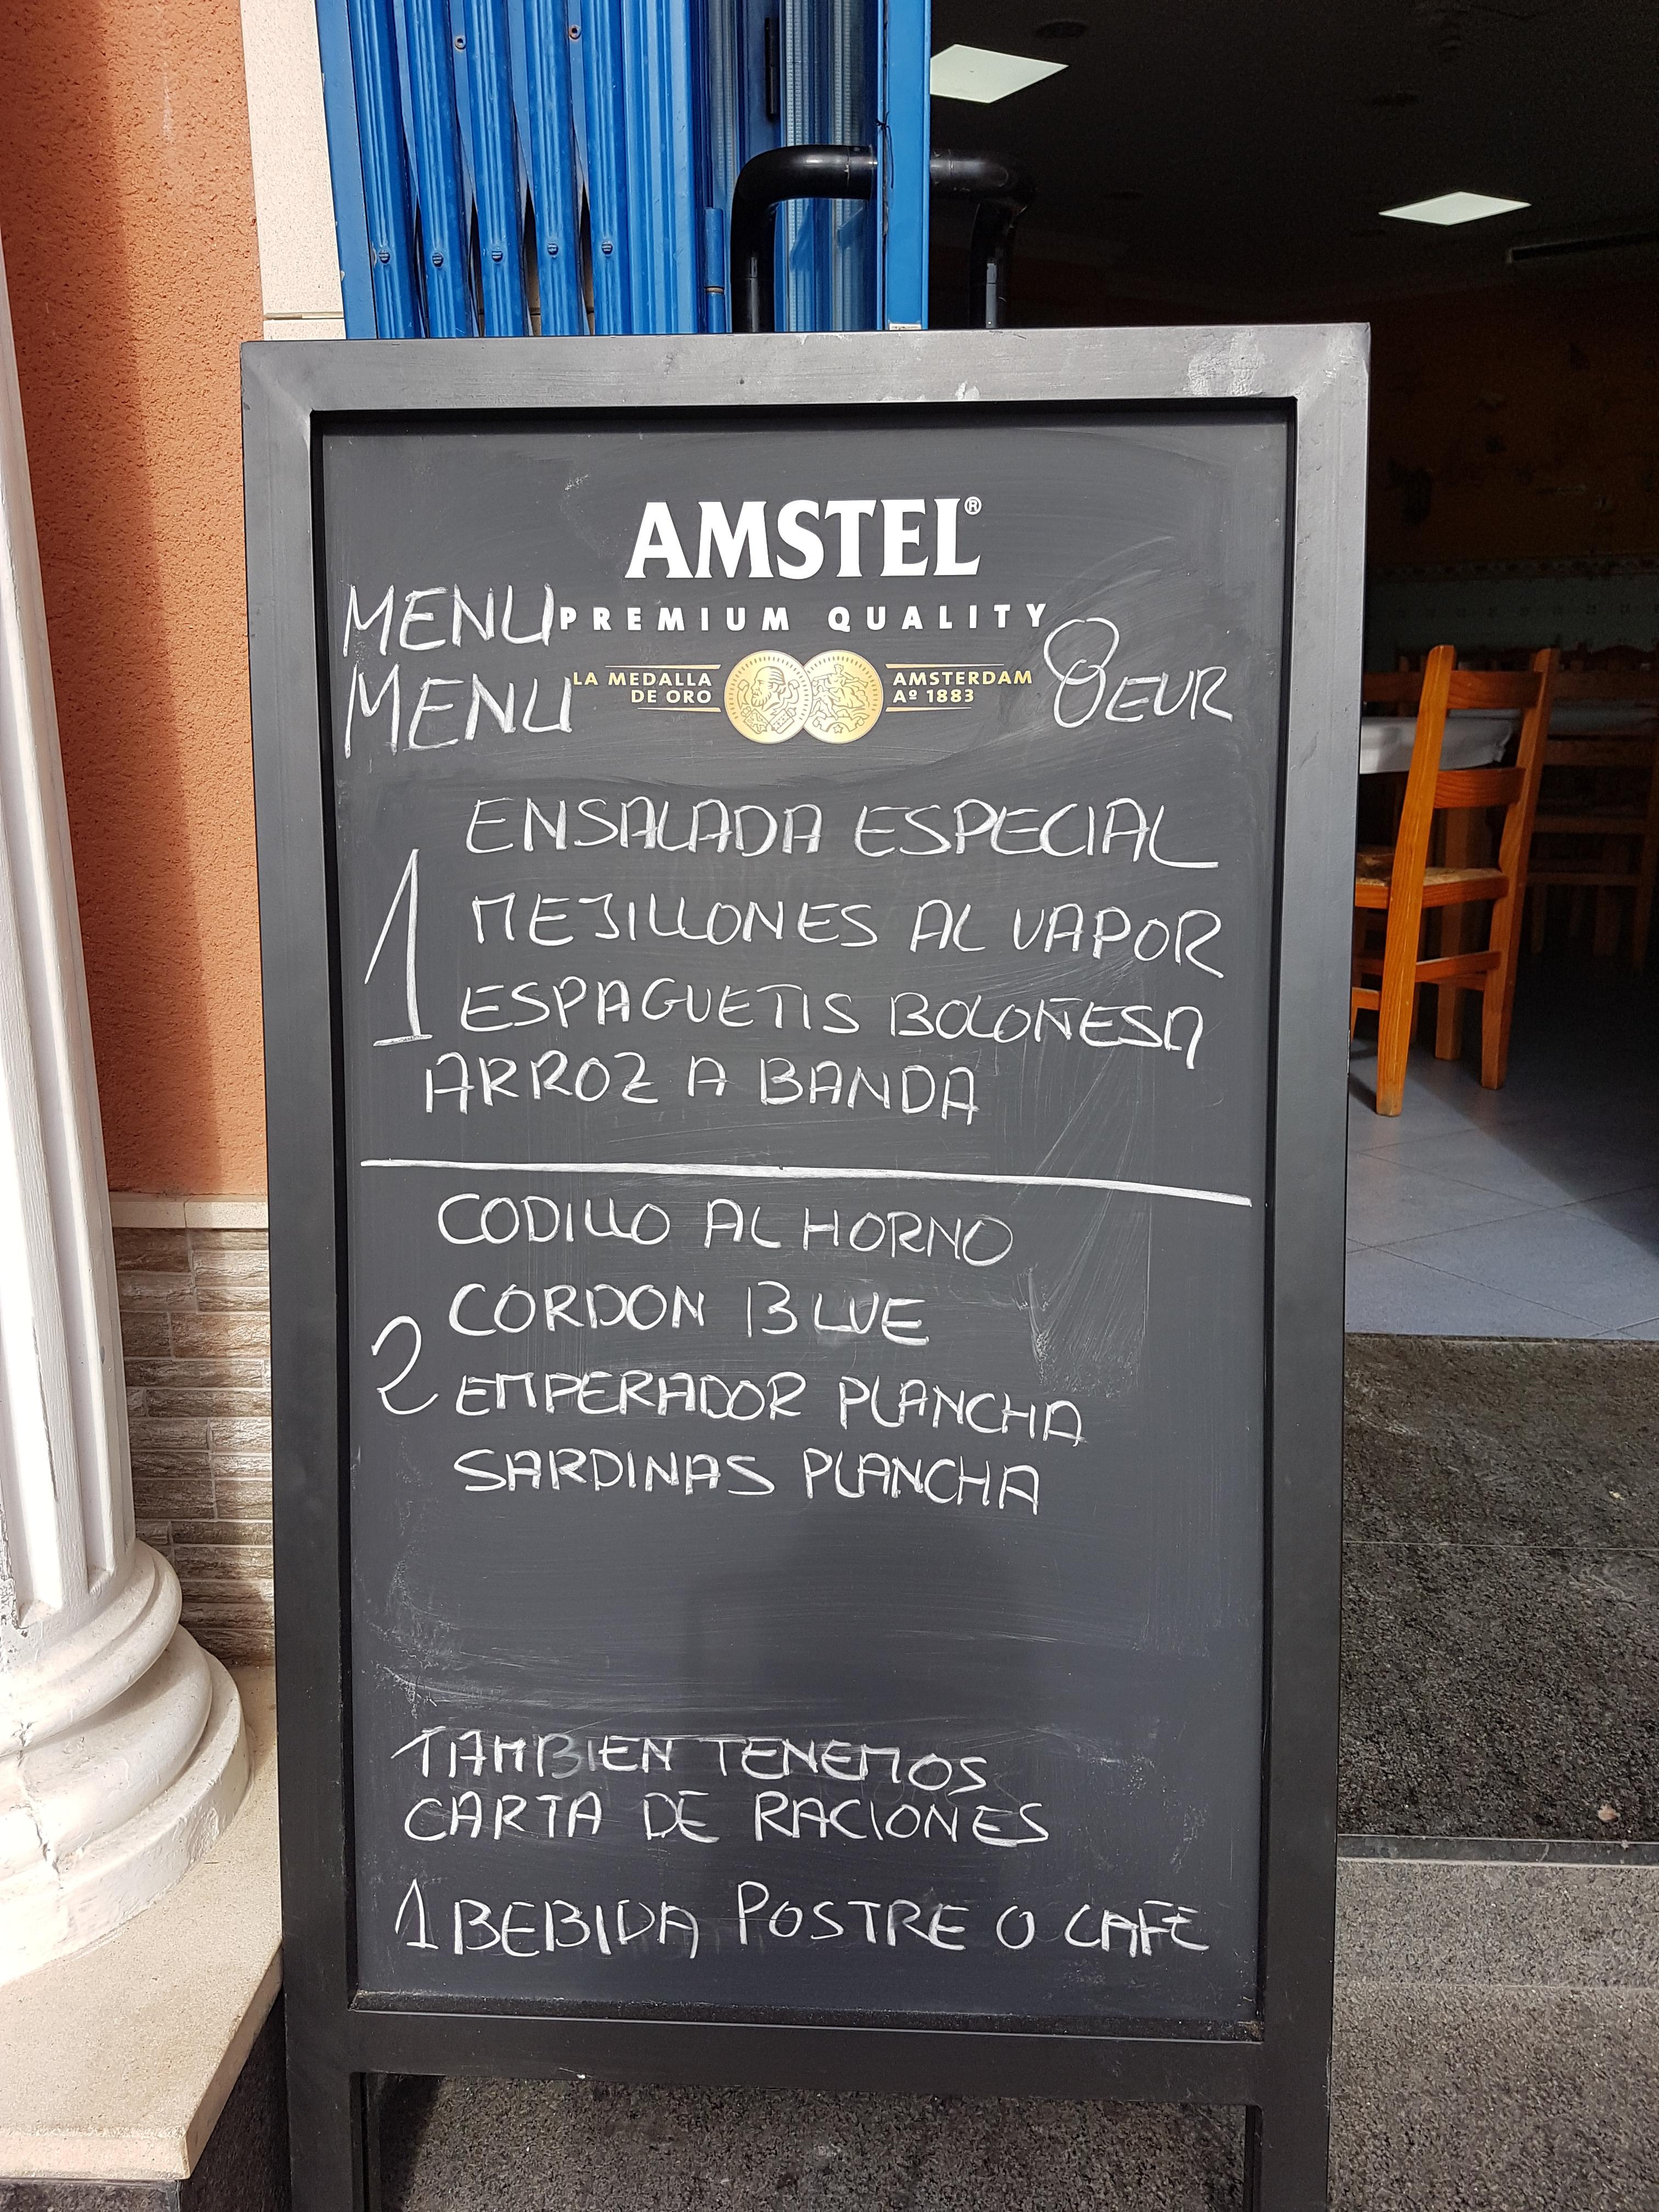 AMSTEL®
MENU PREMIUM QUALITY
MENU LA MEDALLA DE ORO AMSTERDAM Aº 1883 8 EUR
ENSALADA ESPECIAL
1 MEJILLONES AL VAPOR
ESPAGUETIS BOLOÑESA
ARROZ A BANDA
CODILLO AL HORNO
CORDON BLUE
2 EMPERADOR PLANCHA
SARDINAS PLANCHA
TAMBIEN TENEMOS
CARTA DE RACIONES
1 BEBIDA POSTRE O CAFE